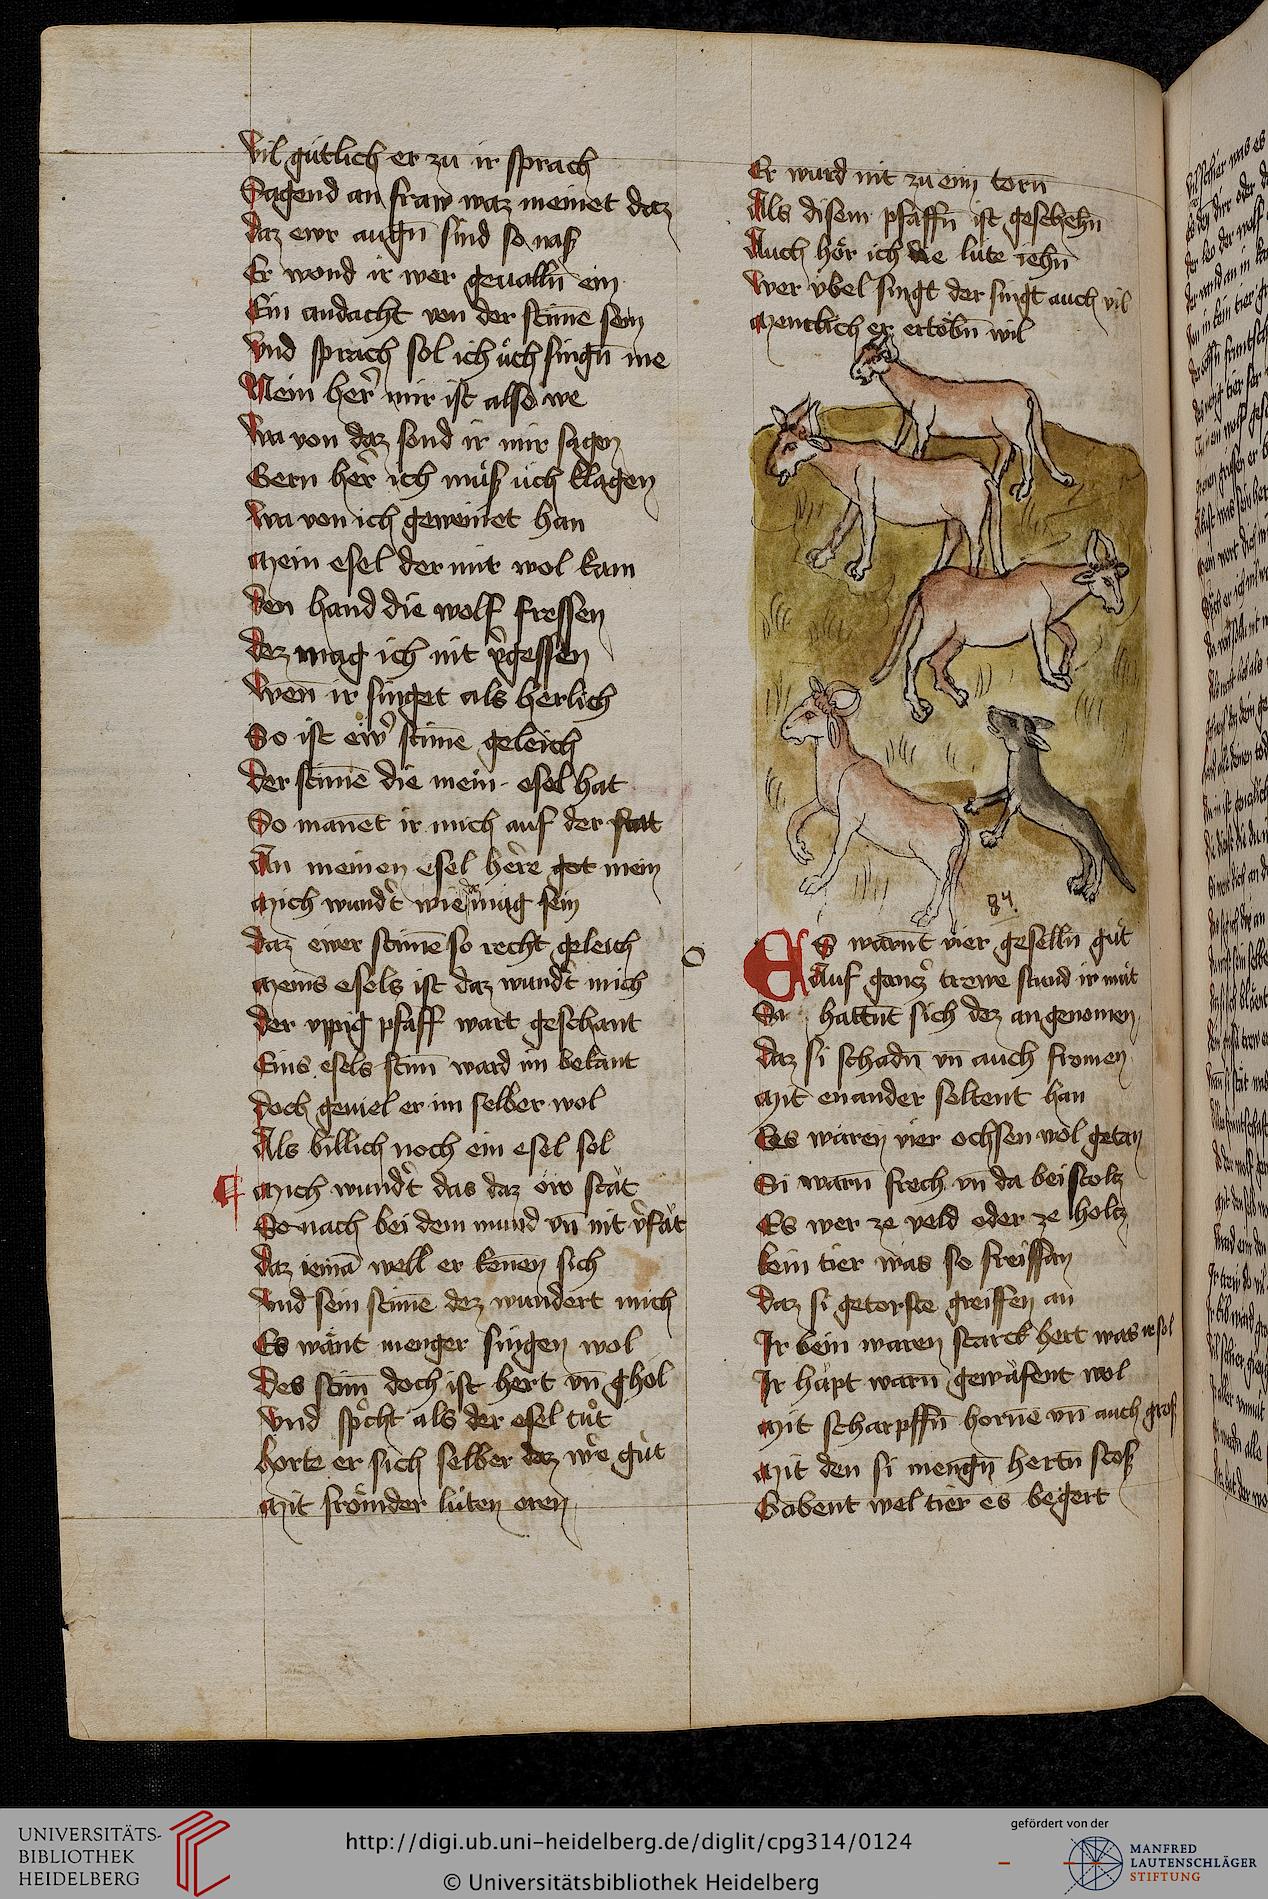 Vil gůtlich er zu ir sprach
Sagend an fraw waz meinet daz
daz ewr augñ sind so naß
Er wond ir wer geuallñ ein
Ein andacht von der stim̄e sein
Vnd sprach sol ich ùch singñ me
Nein her̃ mir ist also we
Wa von daz sond ir mir sagen
Gern her̃ ich můß ùch klagen
Wa von ich geweinet han
Mein esel der mir wol kam
den hand die wolf fressen
dez mag ich nit v̾gessen
Wen̄ ir singet als herlich
So ist ew̾ stim̄e geleich
der stim̄e die mein esel hat
So man̄et ir mich auf der stat
An meinen esel her̾e got mein
Mich wund̾t wie daz mug sein
daz ewer stim̄e so recht geleich
Meins esels ist daz wund̾t mich
der vppig pfaff wart geschant
Eins esels stim̄ ward im bekant
doch geuiel er im selber wol
Als billich noch ein esel sol
Mich wund̾t das daz ör stăt
So nach bei dem mund vn̄ nit v̾făt
daz iemā well er ken̄en sich
Vnd sein stim̄e dez wundert mich
Es wănt menger singen wol
Des stim̄ doch ist hert vn̄ hol
Vnd sp̾cht als der esel tůt
horte er sich selber daz wĕr gůt
Mit frömder lùten oren
Er wurd nit zu eim torn̄
Als disem pfaffn̄ ist geschehn̄
Auch hör ich die lùte iehn̄
Wer v̈bel singt der singt auch vil
Mentlich er ertöbn̄ wil
84.
ES warn̄t vier geselln̄ gůt
Auf gancz̾ trewe stund ir můt
Sa hattn̄t sich dez an genomen
daz si schadn̄ vn̄ auch fromen
Mit enander soltent han
Ees waren vier ochsen wol getan
Si warn̄ frech vn̄ da bei stoltz
Es wer ze veld oder ze holtz
kein tier was so freissan
daz si getorste greiffen an
Ir bein waren starck hert was ir sol
Ir hăpt warn̄ gewăfent wol
Mit scharpffn̄ horn̄e vn̄ auch groß
Mit den si mengn̄ hertn̄ stoß
Gabent wel tier es begert
UNIVERSITÄTS-
BIBLIOTHEK
HEIDELBERG
http://digi.ub.uni-heidelberg.de/diglit/cpg314/0124
© Universitätsbibliothek Heidelberg
gefördert von der
MANFRED
LAUTENSCHLÄGER
STIFTUNG